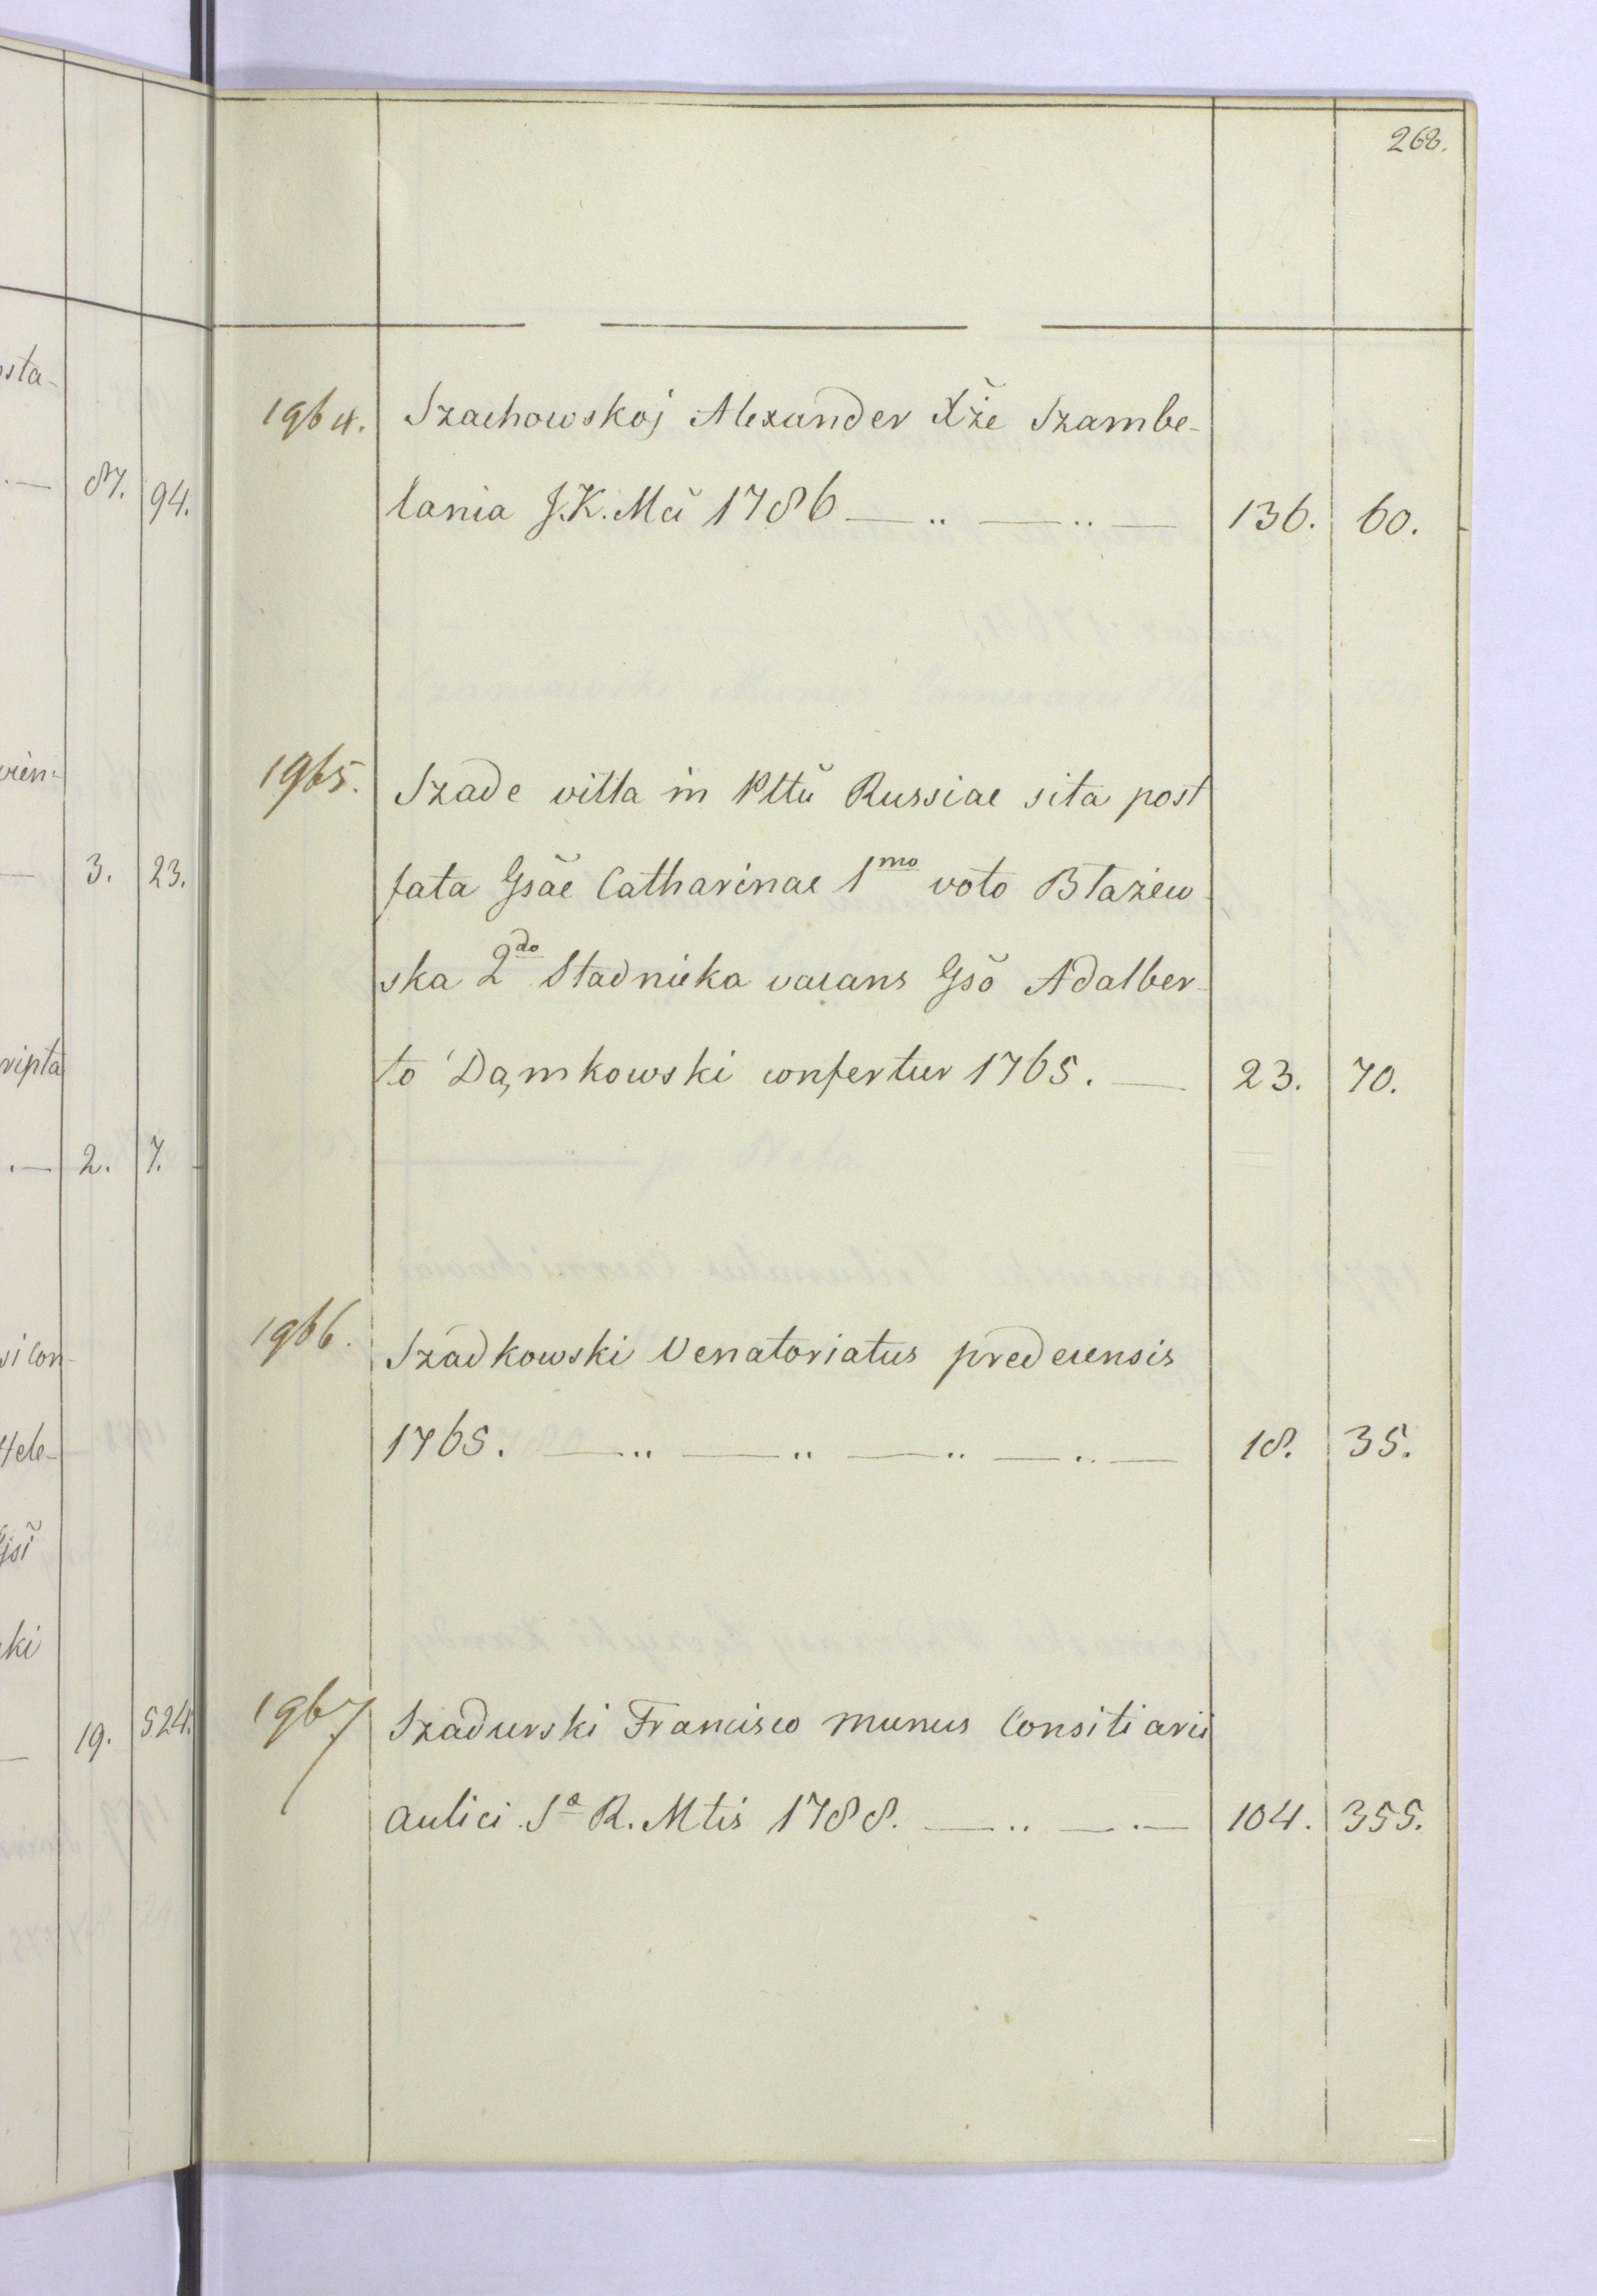 268.
sta-
87. 94.
3. 23.
ripta
2. 7.
si Con-
Hele-
Gsi
ki
19. 524.
1964. Szachowskoj Alexander Xże Szambe-
lania J.K.Mci 1786 — .. — .. — 136. 60.
1965. Szade villa in Plttũ Russiae sita post
fata Gsae Catharinae 1mo voto Błażew-
ska 2do Stadnicka vacans Gso Adalber-
to Dąmkowski confertur 1765. — 23. 70.
1966. Szadkowski Venatoriatus predecensis
1765. — .. — .. — .. — .. — 18. 35.
1967 Szadurski Francisco munus Consiliarii
aulici Sa R. Mtis 1788. — .. — . — 104. 355.